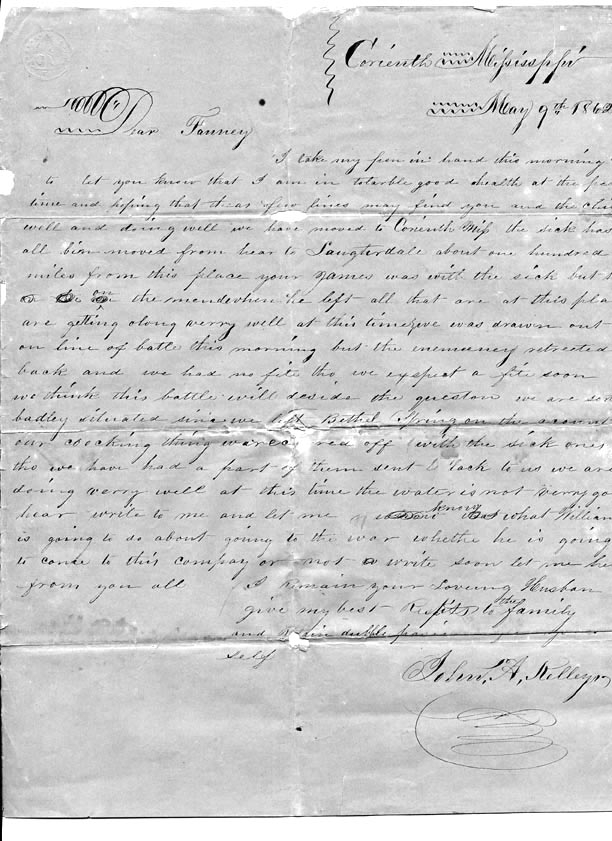 Corienth Mississippi
May 9th 1862
Dear Fanney
I take my pen in hand this morning
to let you know that I am in tolarble good health at the
time and hoping that theas few lines may find you and the
well and doing well we have moved to Corienth Miss the sick has
all bien moved from hear to Laugterdale about one hundred
miles from this place your James was with the sick but
on the mend when he left all that are at this pla
are getting along verry well at this time we was drawn out
on line of batle this morning but the enemeney retreated
back and we had no fite tho we exspect a fite soon
we think this battle will deside the queston we are
badley situated since we left Bethel Spring on the
our coocking thing ware off with the sick ones
tho we have had a part of them sent back to us we are
doing verry well at this time the water is not verry go
hear write to me and let me know what William
is going to do about going to the war whethe he is going
to come to this compay or not write soon let me
from you all I remain your loveing Husban
give my best Respts to the family
and dubble
self
John, A, Kelley